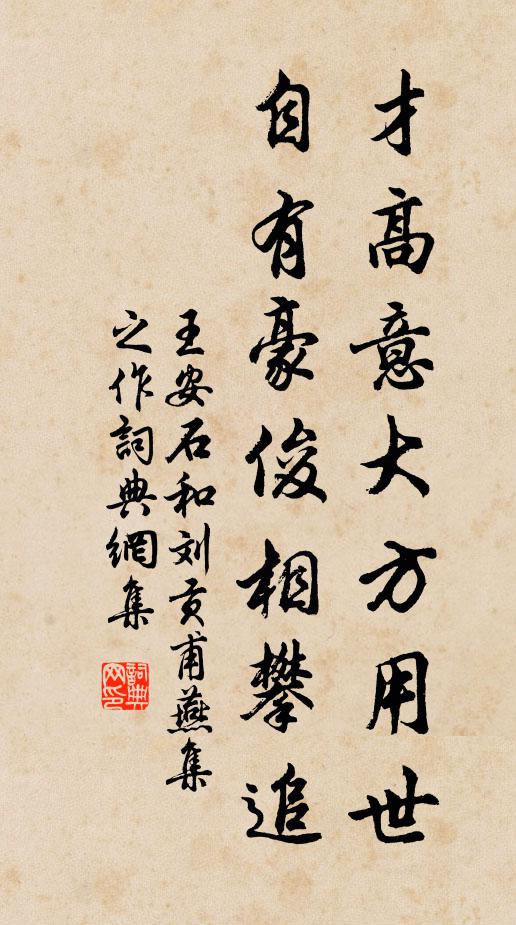 才高意大方用世
自有豪俊相攀追
王安石和刘贡甫燕集
之作詞典網集
詞典网印